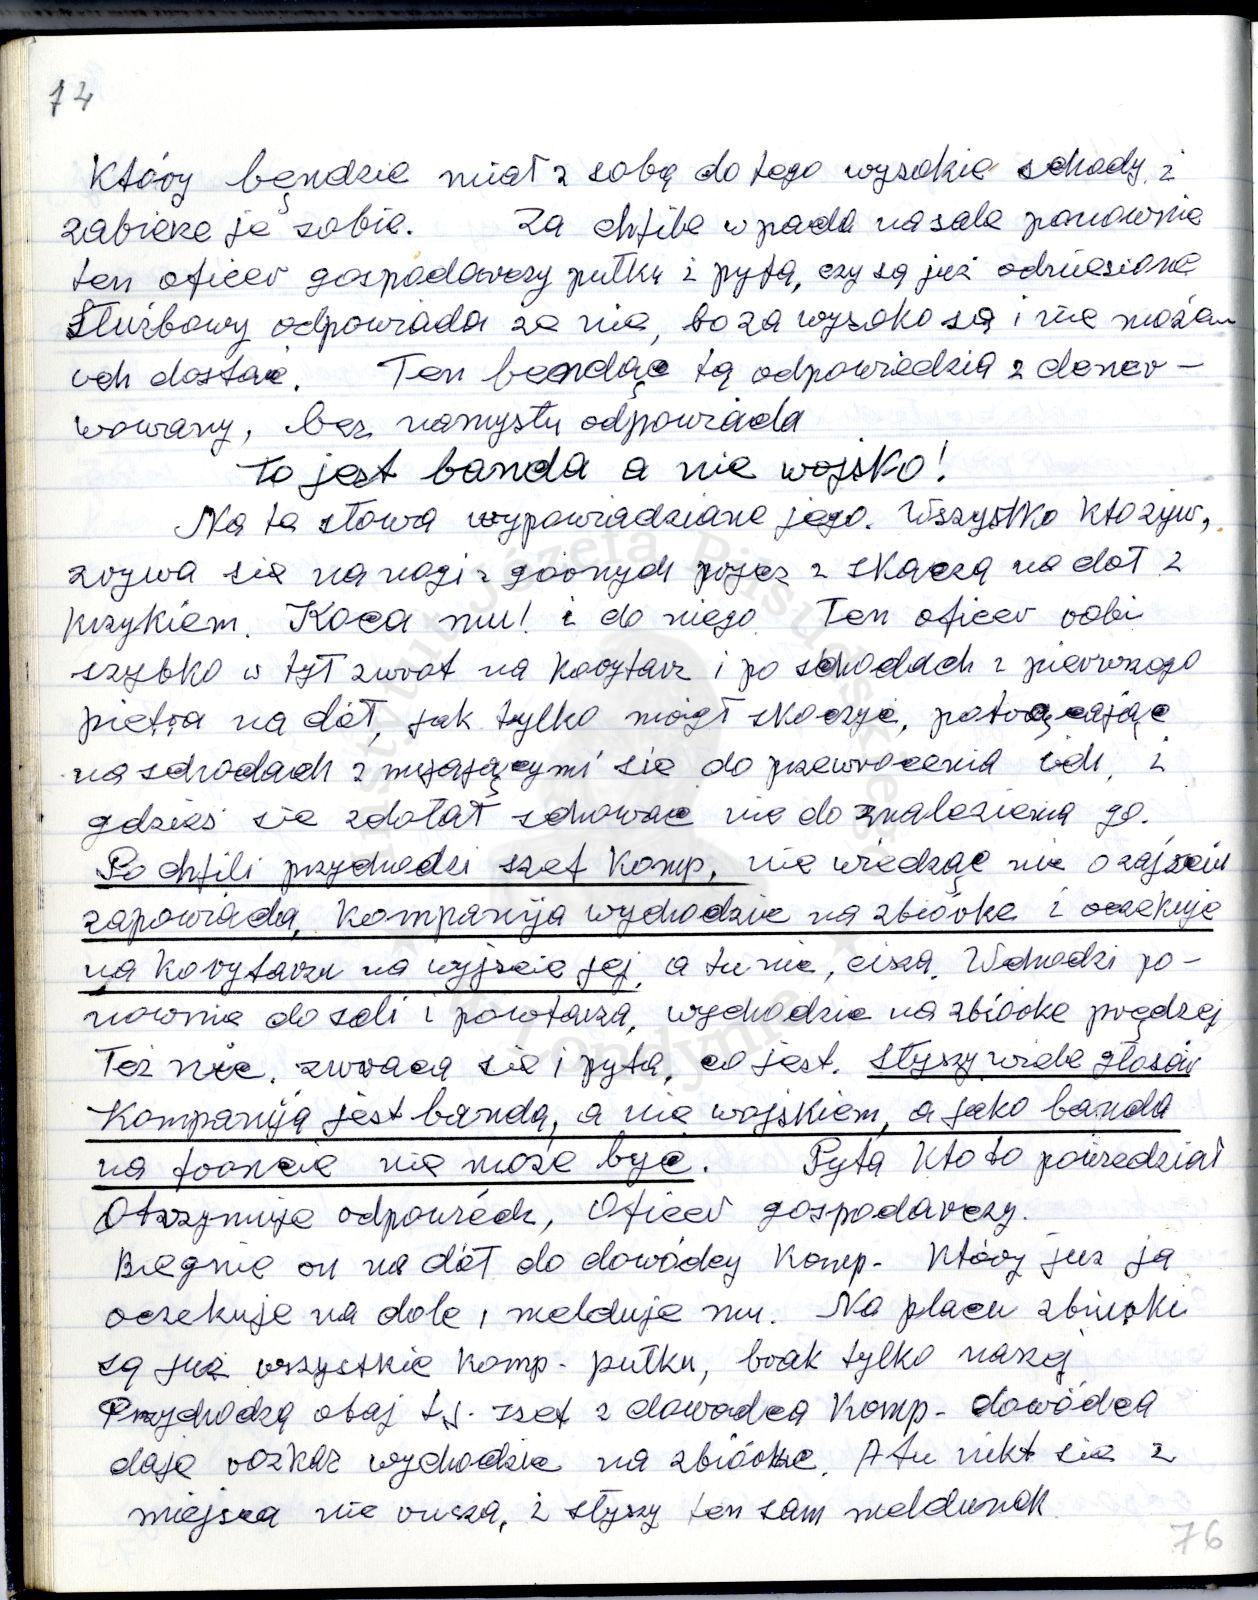 74
Który bęndzie miał z sobą do tego wysokie schody, i
zabieże je sobie. Za chfile wpada na sale ponownie
ten oficer gospodarczy pułku i pytą, czy są już odniesione
Służbowy odpowiada że nie, bo za wysoko są i nie można
ich dostać. Ten bendąc tą odpowiedzią z dener-
wowany, bez namysłu odpowiada
To jest banda a nie wojsko!
Na te słowa wypowiedziane jego. Wszystko kto żyw,
zrywa sie na nogi z górnych prycz i skaczą na dół z
krzykiem. Koca mu! i do niego. Ten oficer robi
szybko w tył zwrot na korytarz i po schodach z pierwszego
pietra na dół, jak tylko mógł skoczyć, potrącając
na schodach z mijającymi sie do przewrócenia ich, i
gdzieś sie zdołał schować nie do znalezienia go.
Po chfili przychodzi szef komp, nie wiedząc nic o zajściu
zapowiada, Kompanija wychodzić na zbiórke i oczekuje
na korytarzu na wyjście jej, a tu nic, cisza. Wchodzi po-
nownie do sali i powtarza, wychodzić na zbiórke prędzej
Też nic. zwraca sie i pyta, co jest. Słyszy wiele głosów
Kompanija jest bandą, a nie wojskiem, a jako banda
na froncie nie może być. Pyta kto to powiedział
Otrzymuje odpowiedź, Oficer gospodarczy.
Biegnie on na dół do dowódcy komp- Który już ją
oczekuje na dole, melduje mu. Na placu zbiurki
są już wszystkie komp- pułku, brak tylko naszej
Przychodzą obaj t.j. szef z dowodcą Komp- dowódca
daje rozkaz wychodzić na zbiórke. A tu nikt sie z
miejsca nie rusza, i słyszy ten sam meldunek
76
Instytut Józefa Piłsudskiego
w Londynie